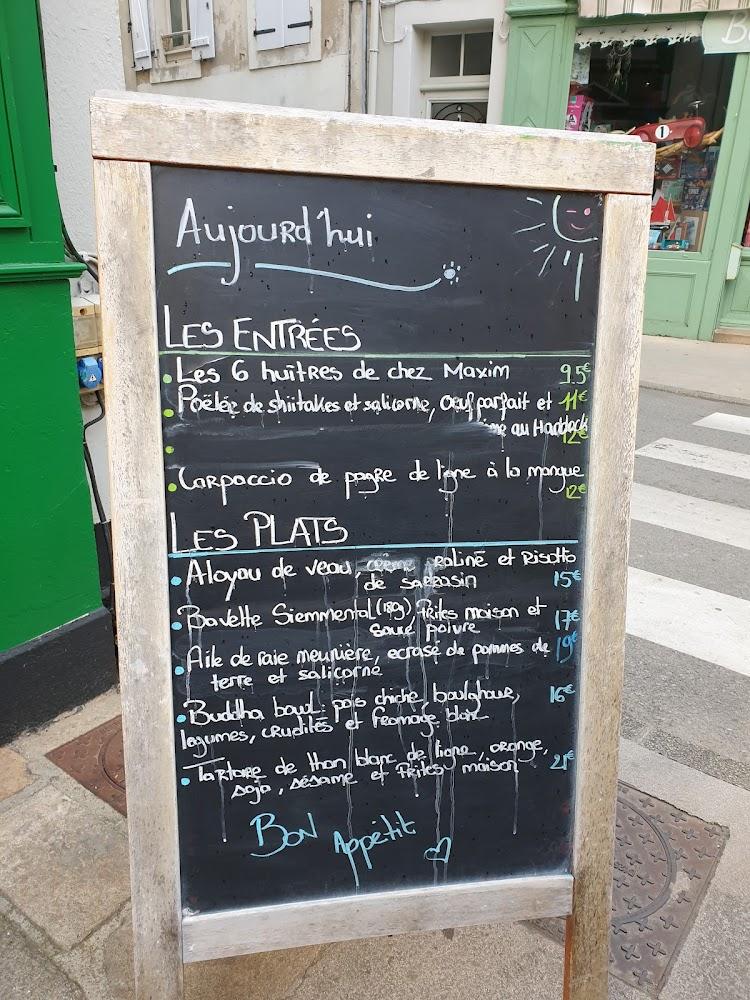 Aujourd'hui
LES ENTRÉES
Les 6 huîtres de chez Maxim 9.5€
Poêlée de shiitakes et salicorne, Oeuf parfait et 11€
au Haddock
12€
Carpaccio de pagre de ligne à la mangue
12€
LES PLATS
Aloyau de veau, crème praliné et Risotto
de sarrasin 15€
Bavette Siemmental (180g), frites maison et 17€
sauce poivre
Aile de raie meunière, ecrasé de pommes de 19€
terre et salicorne
Buddha bowl: pois chiche, boulghour, 16€
légumes, crudités et fromage blanc
Tartare de thon blanc de ligne, orange,
soja, sésame et frites maison 21€
BON Appétit
1
B